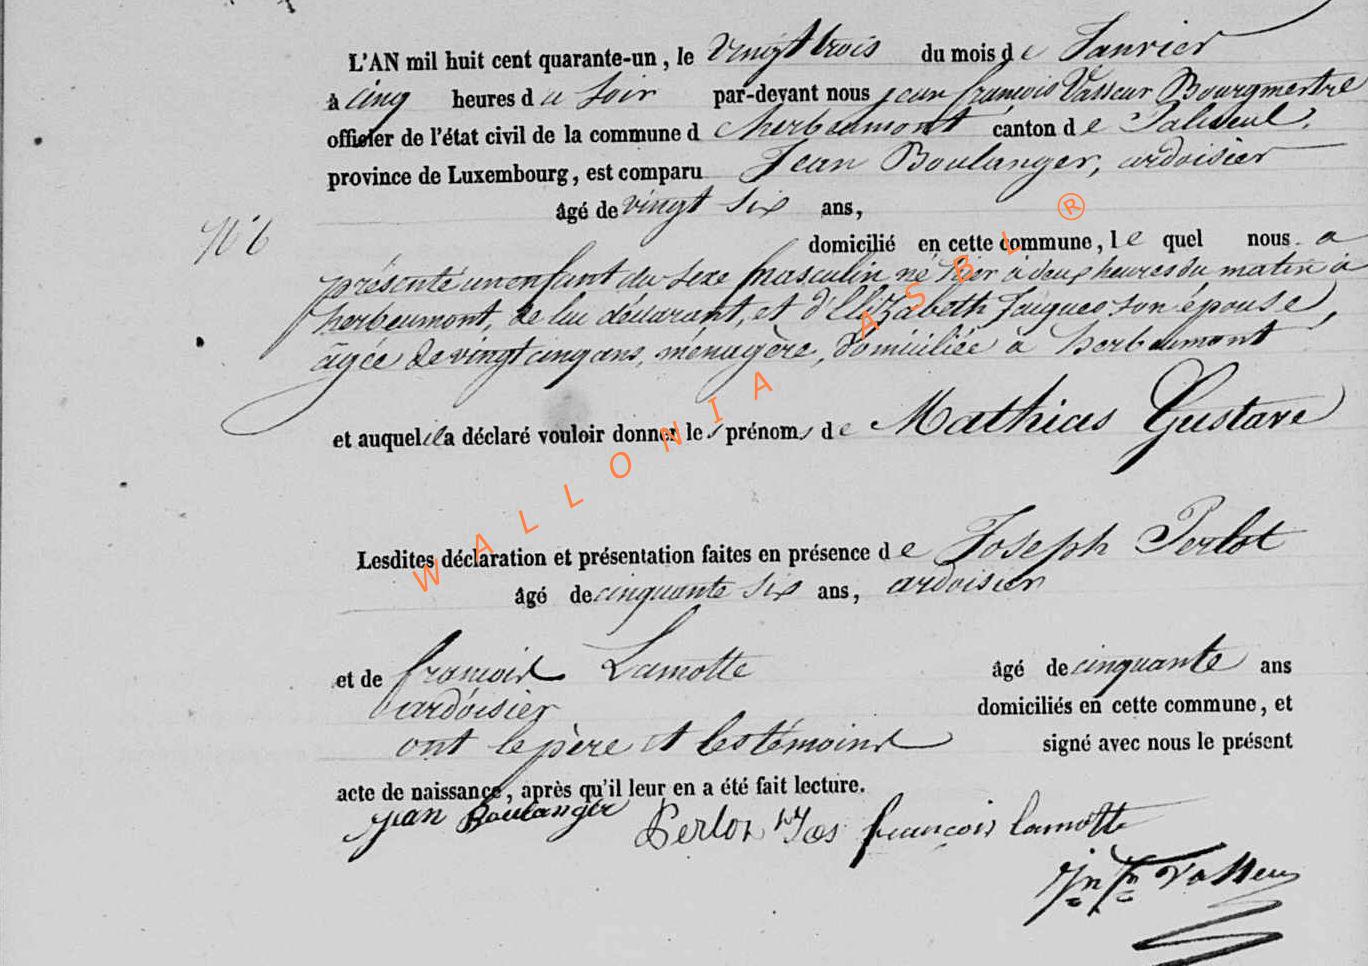 L'AN mil huit cent quarante-un, le vingt trois du mois de Janvier
à cinq heures du Soir par-devant nous jean françois Vasseur Bourgmestre
officier de l'état civil de la commune d'herbeumont canton de Paliseul,
province de Luxembourg, est comparu Jean Boulanger, ardoisier
âgé de vingt Six ans,
N° 6
domicilié en cette commune, le quel nous a
présenté un enfant du sexe masculin né hier à deux heures du matin à
herbeumont, de lui déclarant, et d'Elizabeth Jaques son épouse,
âgée de vingt cinq ans, ménagère, domiciliée à herbeumont
et auquel il a déclaré vouloir donner les prénoms de Mathias Gustave
Lesdites déclaration et présentation faites en présence de Joseph Perlot
âgé de cinquante six ans, ardoisier
et de françois Lamotte âgé de cinquante ans
ardoisier domiciliés en cette commune, et
ont le père et les témoins signé avec nous le présent
acte de naissance, après qu'il leur en a été fait lecture.
jean Boulanger Perlot Jos françois lamotte
Jn Fs Vasseur
WALLONIA ASBL ®